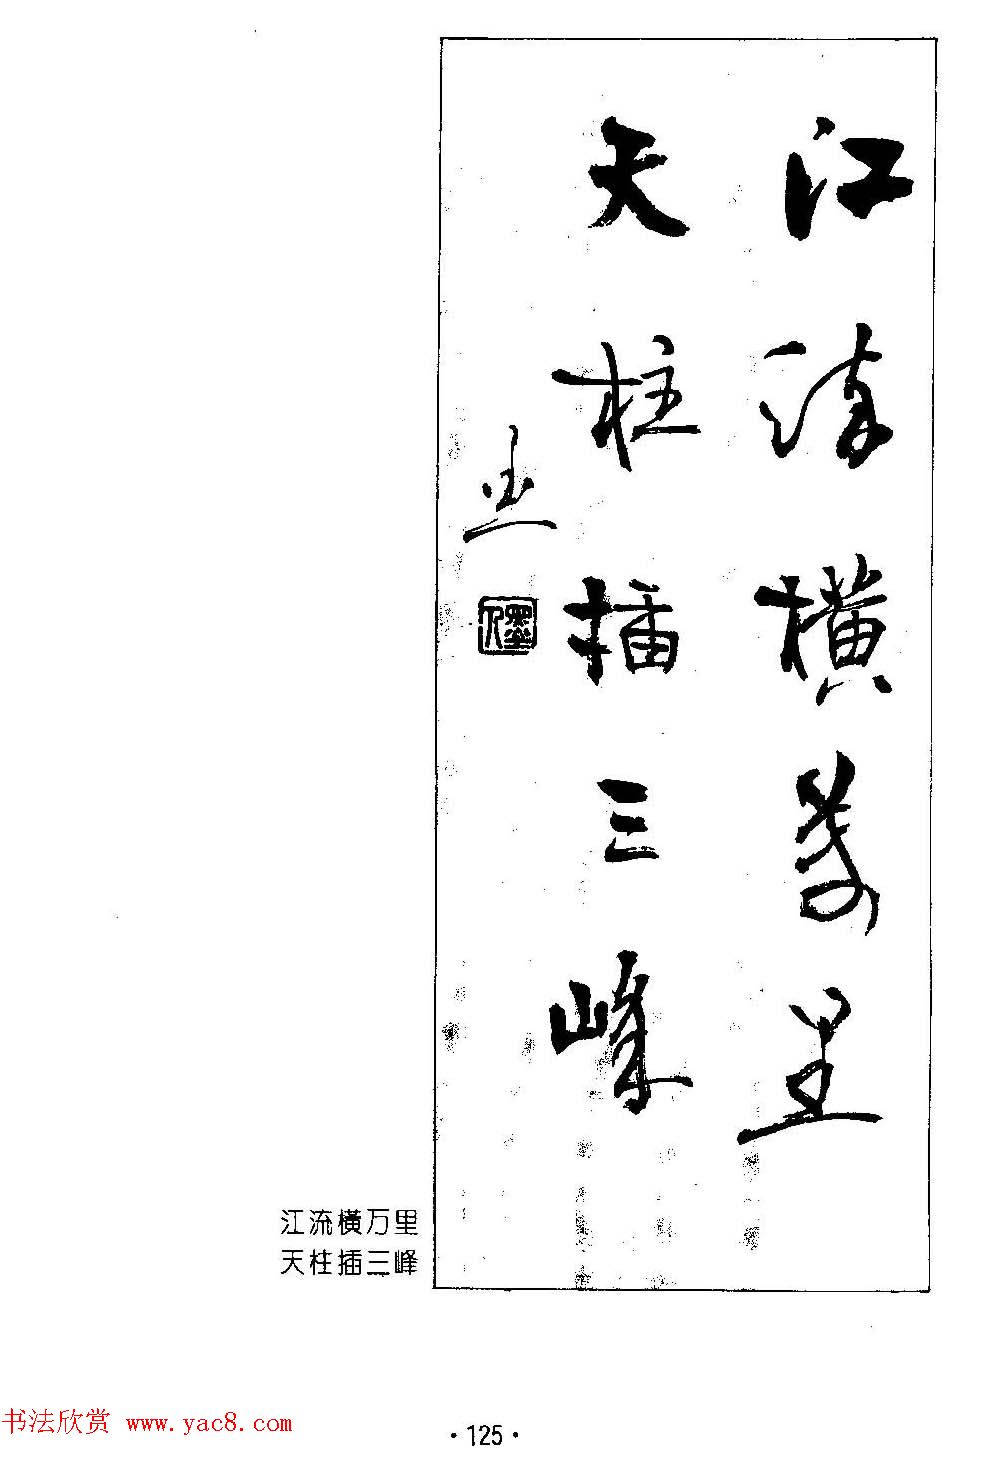 江流横萬里
天柱插三峰
江流橫万里
天柱插三峰
书法欣赏 www.yac8.com
·125·